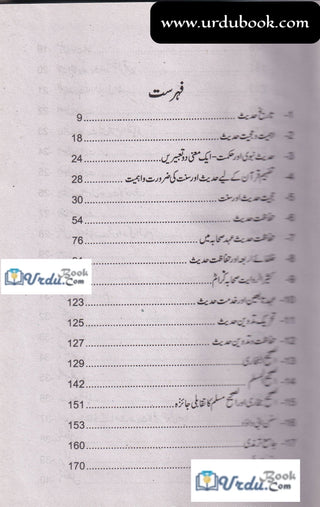 www.urdubook.com
فہرست
1- تاریخ حدیث 9
2- اہمیت و حجیت حدیث 18
3- حدیث نبوی اور حکمت - ایک معنی دو تعبیریں 24
4- تفہیم قرآن کے لیے حدیث اور سنت کی ضرورت و اہمیت 28
5- حجیت حدیث اور سنت 30
6- حفاظت حدیث 54
7- حفاظت حدیث عہد صحابہ میں 76
8- خلفائے اربعہ اور حفاظت حدیث
Urdu Book .Com
9- کثیر الروایت صحابہ کرامؓ
10- عہد تابعین اور خدمت حدیث 123
11- تحریک تدوین حدیث 125
12- حفاظت و تدوین حدیث 127
13- صحیح البخاری 129
14- صحیح المسلم 142
15- صحیح بخاری اور صحیح مسلم کا تقابلی جائزہ 151
16- سنن ابی داؤد 153
17- جامع ترمذی 160
170
Urdu Book .Com